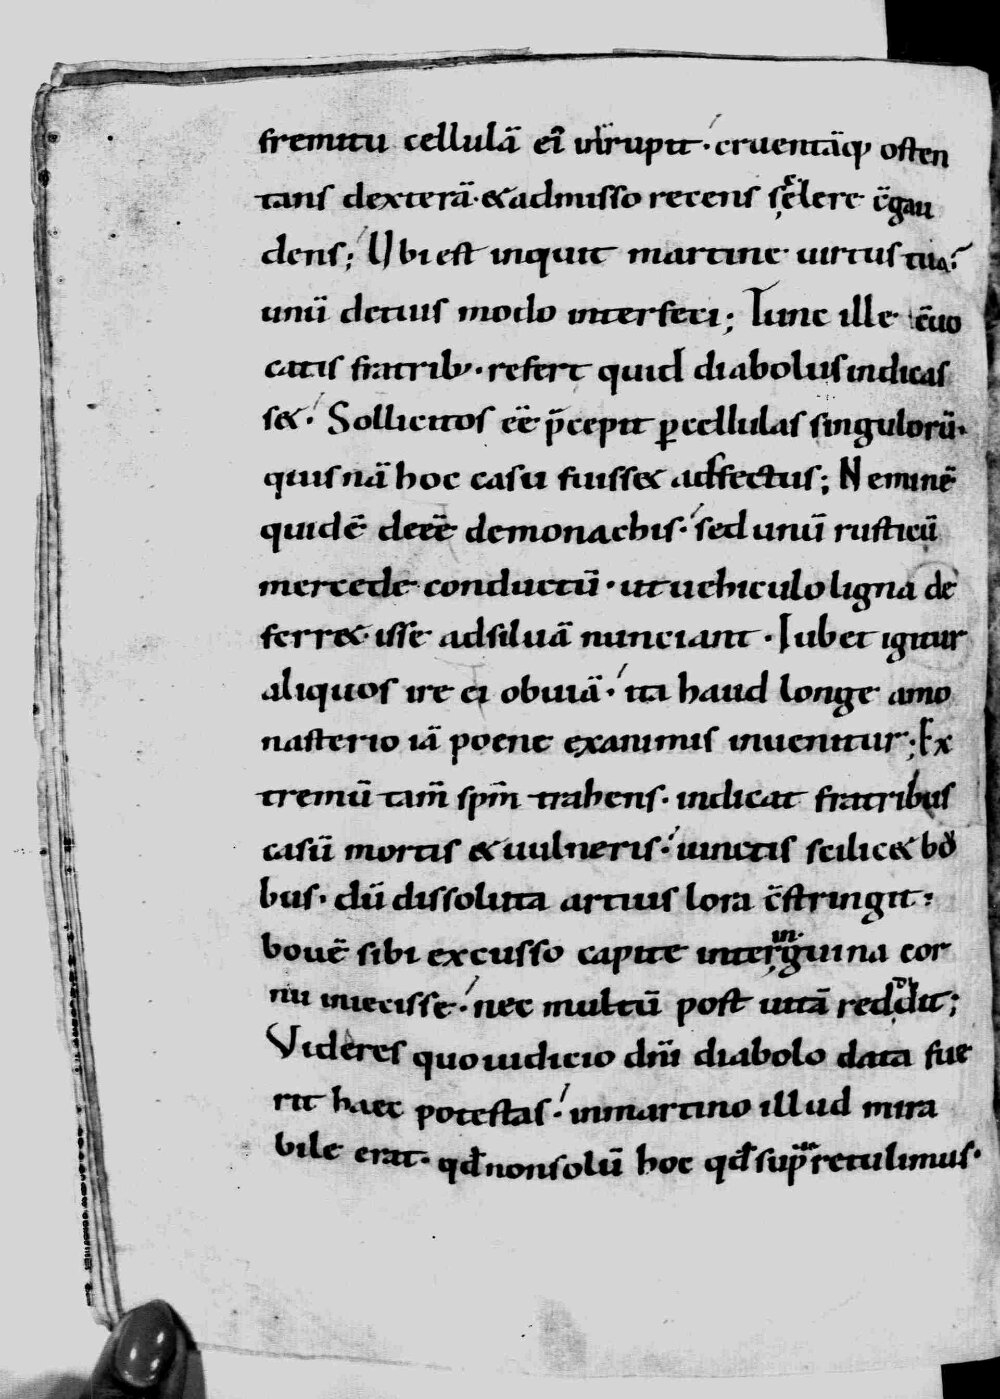 fremitu cellulā ei᷑ irrupit · cruentāq; osten
tans dexterā · & admisso recens scelere c̄gau
dens ; Ubi est inquit martine uirtus tua?
unū detuis modo interfeci ; Tunc ille c̄uo
catis fratrib; · refert quid diabolus indicas
s& · Sollicitos eē p̄cepit ꝑcellulas singulorū ·
quis nā hoc casu fuiss& adfectus ; Neminē
quidē deeē demonachis · sed unū rusticū
mercede conductū · ut uehiculo ligna de
ferr& · isse adsiluā nunciant · Iubet igitur
aliquos ire ei obuiā · ita haud longe amo
nasterio iā poene exanimis inuenitur ; Ex
tremū tam̄ spm̄ trahens · indicat fratribus
casū mortis & uulneris · iunctis scilic& bo
bus · dū dissoluta artius lora c̄stringit ·
bouē sibi excusso capite inter inguina cor
nu iniecisse · nec multū post uitā reddidit ;
Videres quo iudicio dnī diabolo data fue
rit haec potestas · inmartino illud mira
bile erat · qđ nonsolū hoc qđ supra retulimus ·